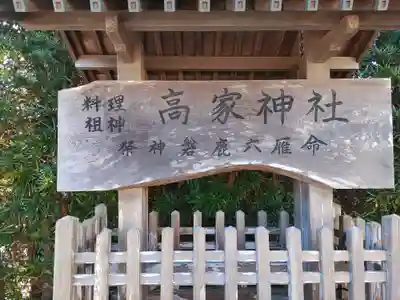 料理祖神 高家神社
祭神磐鹿六雁命